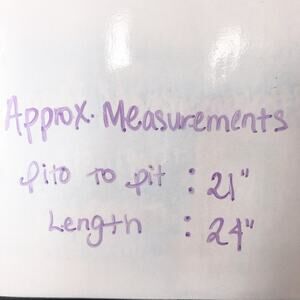 Approx. Measurements
Pito to pit : 21"
Length : 24"